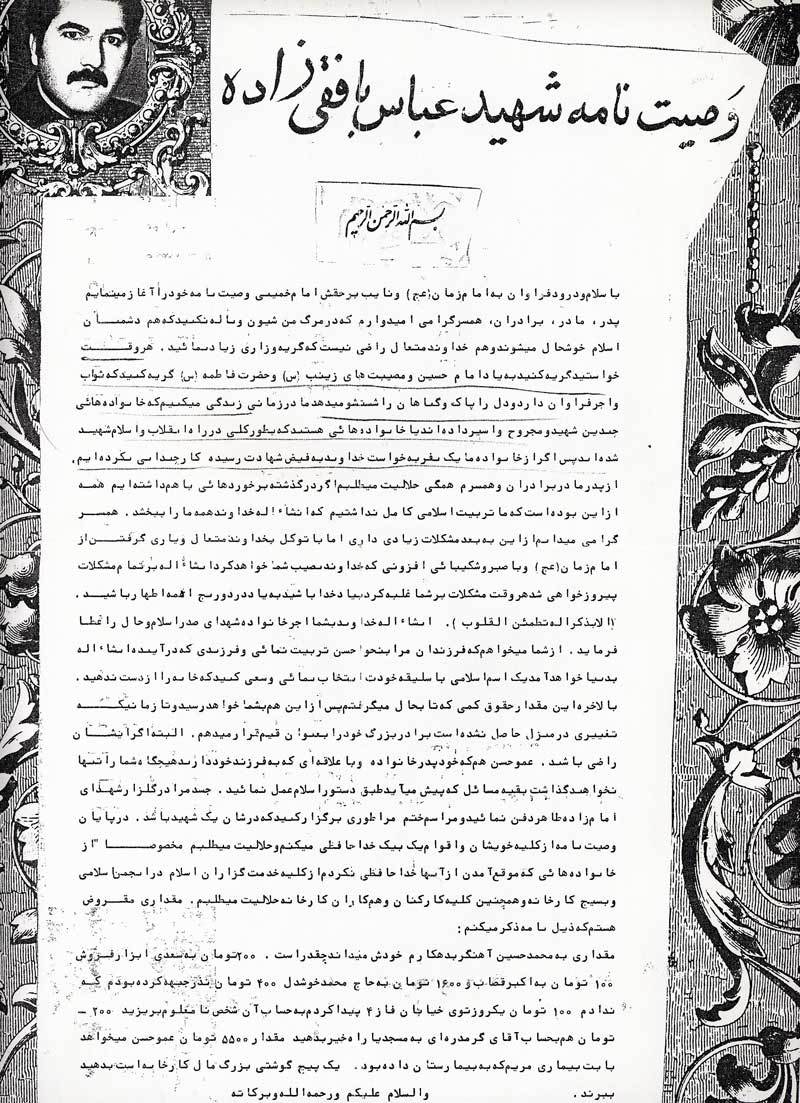 وصیت نامه شهید عباس بافقی زاده
بسم الله الرحمن الرحیم
با سلام و درود فراوان به امام زمان (عج) و نایب برحقش امام خمینی وصیت نامه خود را آغاز مینمایم
پدر، مادر، برادران، همسر گرامی امیدوارم که در مرگ من شیون و ناله نکنید که هم دشمنان
اسلام خوشحال میشوند و هم خداوند متعال راضی نیست که گریه وزاری زیاد نمائید. هر وقت
خواستید گریه کنید به یاد امام حسین و مصیبت های زینب (س) و حضرت فاطمه (س) گریه کنید که ثواب
و اجر فراوان دارد و دل را پاک و گناهان را شستشو میدهد ما در زمانی زندگی میکنیم که خانواده هائی
چندین شهید و مجروح و اسیر داده اند یا خانواده هائی هستند که بطور کلی در راه انقلاب و اسلام شهید
شده اند پس اگر از خانواده ما یک نفر به خواست خداوند به فیض شهادت رسیده کار چندانی نکرده ایم.
از پدر مادر برادران و همسرم همگی حلالیت میطلبم اگر در گذشته برخوردهائی با هم داشته ایم همه
از این بوده است که ما تربیت اسلامی کامل نداشتیم که انشاء اله خداوند همه ما را ببخشد. همسر
گرامی میدانم از این به بعد مشکلات زیادی داری اما با توکل بخداوند متعال و یاری گرفتن از
امام زمان (عج) و با صبر و شکیبائی افزونی که خداوند نصیب شما خواهد کرد انشاء اله بر تمام مشکلات
پیروز خواهی شد هر وقت مشکلات بر شما غلبه کرد بیاد خدا باشید به یاد درد و رنج ائمه اطهار باشید.
(الا بذکر اله تطمئن القلوب). انشاء اله خداوند بشما اجر خانواده شهدای صدر اسلام و حال را عطا
فرماید. از شما میخواهم که فرزندان مرا بنحو احسن تربیت نمائی و فرزندی که در آینده انشاء اله
بدنیا خواهد آمد یک اسم اسلامی با سلیقه خودت انتخاب نمائی و سعی کنید که خانه را از دست ندهید.
بالاخره این مقدار حقوق کمی که تا بحال میگرفتم پس از این هم بشما خواهد رسید و تا زمانیکه
تغییری در منزل حاصل نشده است برادر بزرگ خود را بعنوان قیم قرار میدهم. البته اگر ایشان
راضی باشد. عمو حسن هم که خود پدر خانواده و با علاقه ای که به فرزند خود دارد هیچگاه شما را تنها
نخواهند گذاشت بقیه مسائل که پیش میآید طبق دستور اسلام عمل نمائید. جسد مرا در گلزار شهدای
امام زاده طاهر دفن نمائید و مراسم ختم مرا طوری برگزار کنید که در شان یک شهید باشد. در پایان
وصیت نامه از کلیه خویشان و اقوام یک بیک خداحافظی میکنم و حلالیت میطلبم مخصوصا" از
خانواده هائی که موقع آمدن از آنها خداحافظی نکردم از کلیه خدمت گزاران اسلام در انجمن اسلامی
و بسیج کارخانه و همچنین کلیه کارکنان و همکاران کارخانه حلالیت میطلبم. مقداری مقروض
هستم که ذیل نامه ذکر میکنم:
مقداری به محمد حسین آهنگر بدهکارم خودش میداند چقدر است. ۲۰۰ تومان به سعدی ابزار فروش
۱۰۰ تومان به اکبر قصاب و ۱۶۰۰ تومان به حاج محمد خوشدل ۴۰۰ تومان نذر جبهه کرده بودم که
ندادم ۱۰۰ تومان یکروز توی خیابان فاز ۴ پیدا کردم به حساب آن شخص نامعلوم بریزید ۲۰۰ -
تومان هم بحساب آقای گرمدره ای به مسجد یا راه خیر بدهید مقدار ۵۵۰۰ تومان عمو حسن میخواهد
بابت بیماری مریم که به بیمارستان داده بود. یک پیچ گوشتی بزرگ مال کارخانه است بدهید
ببرند. والسلام علیکم و رحمه الله و برکاته